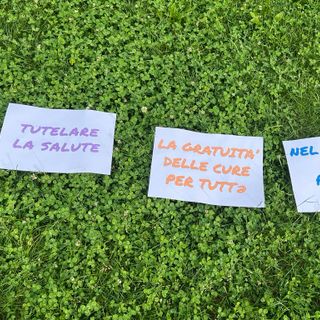 TUTELARE
LA SALUTE
LA GRATUITA'
DELLE CURE
PER TUTTƏ
NEL